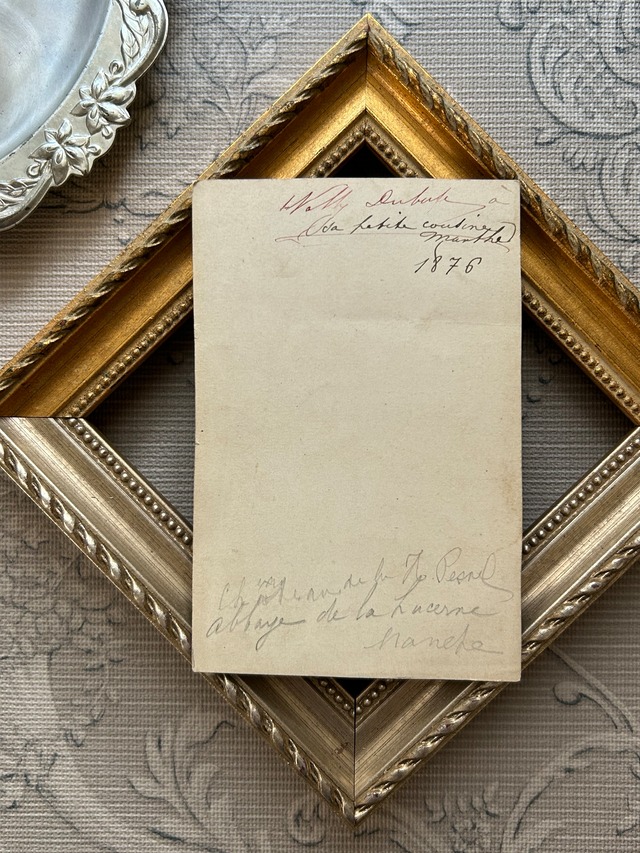 Nelly Dubut à
sa petite cousine
Marthe
1876
de la Pesnel
abbaye de la Lucerne
Manche